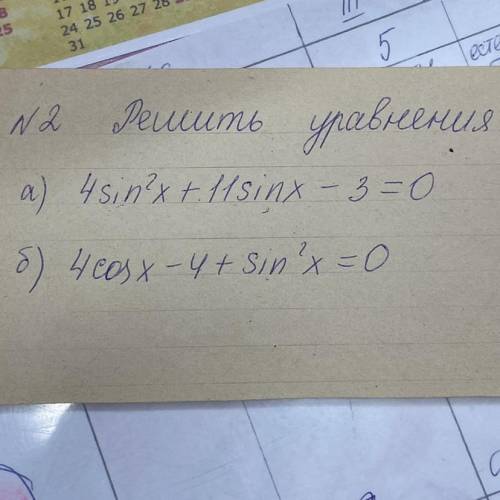 III
17 18 19
24 25 26 27 28
31
25
5
N2 Решить уравнения
а) 4sin²x + 11sinx - 3 = 0
б) 4cosx - 4 + sin²x = 0